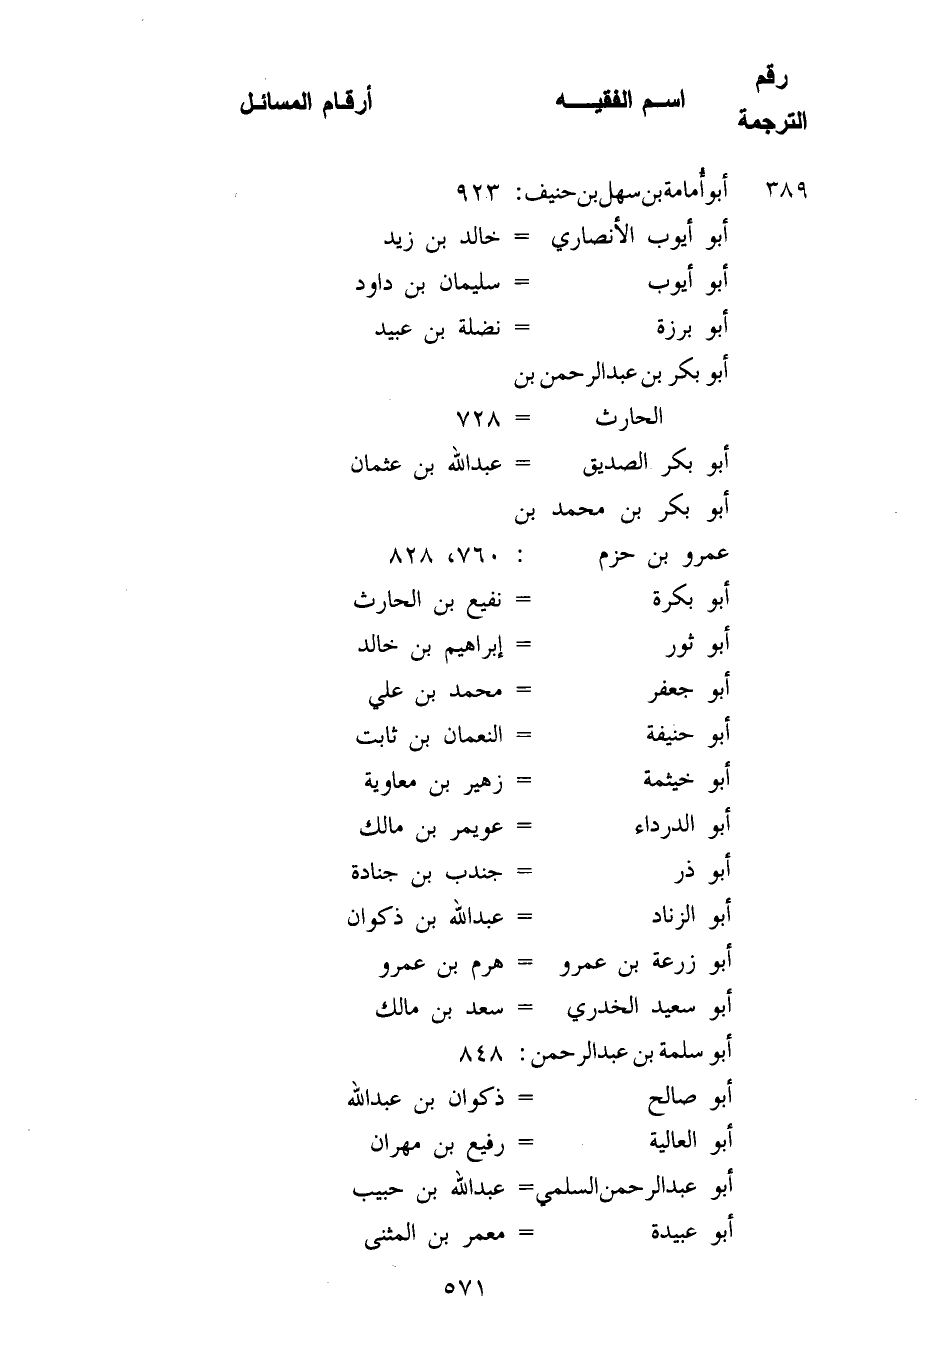 رقم
الترجمة
اسـم الفقيـــه
أرقـام المسائـل
٣٨٩ أبو أُمامة بن سهل بن حنيف: ٩٢٣
أبو أيوب الأنصاري = خالد بن زيد
أبو أيوب = سليمان بن داود
أبو برزة = نضلة بن عبيد
أبو بكر بن عبدالرحمن بن
الحارث = ٧٢٨
أبو بكر الصديق = عبدالله بن عثمان
أبو بكر بن محمد بن
عمرو بن حزم : ٧٦٠، ٨٢٨
أبو بكرة = نفيع بن الحارث
أبو ثور = إبراهيم بن خالد
أبو جعفر = محمد بن علي
أبو حنيفة = النعمان بن ثابت
أبو خيثمة = زهير بن معاوية
أبو الدرداء = عويمر بن مالك
أبو ذر = جندب بن جنادة
أبو الزناد = عبدالله بن ذكوان
أبو زرعة بن عمرو = هرم بن عمرو
أبو سعيد الخدري = سعد بن مالك
أبو سلمة بن عبدالرحمن: ٨٤٨
أبو صالح = ذكوان بن عبدالله
أبو العالية = رفيع بن مهران
أبو عبدالرحمن السلمي= عبدالله بن حبيب
أبو عبيدة = معمر بن المثنى
٥٧١